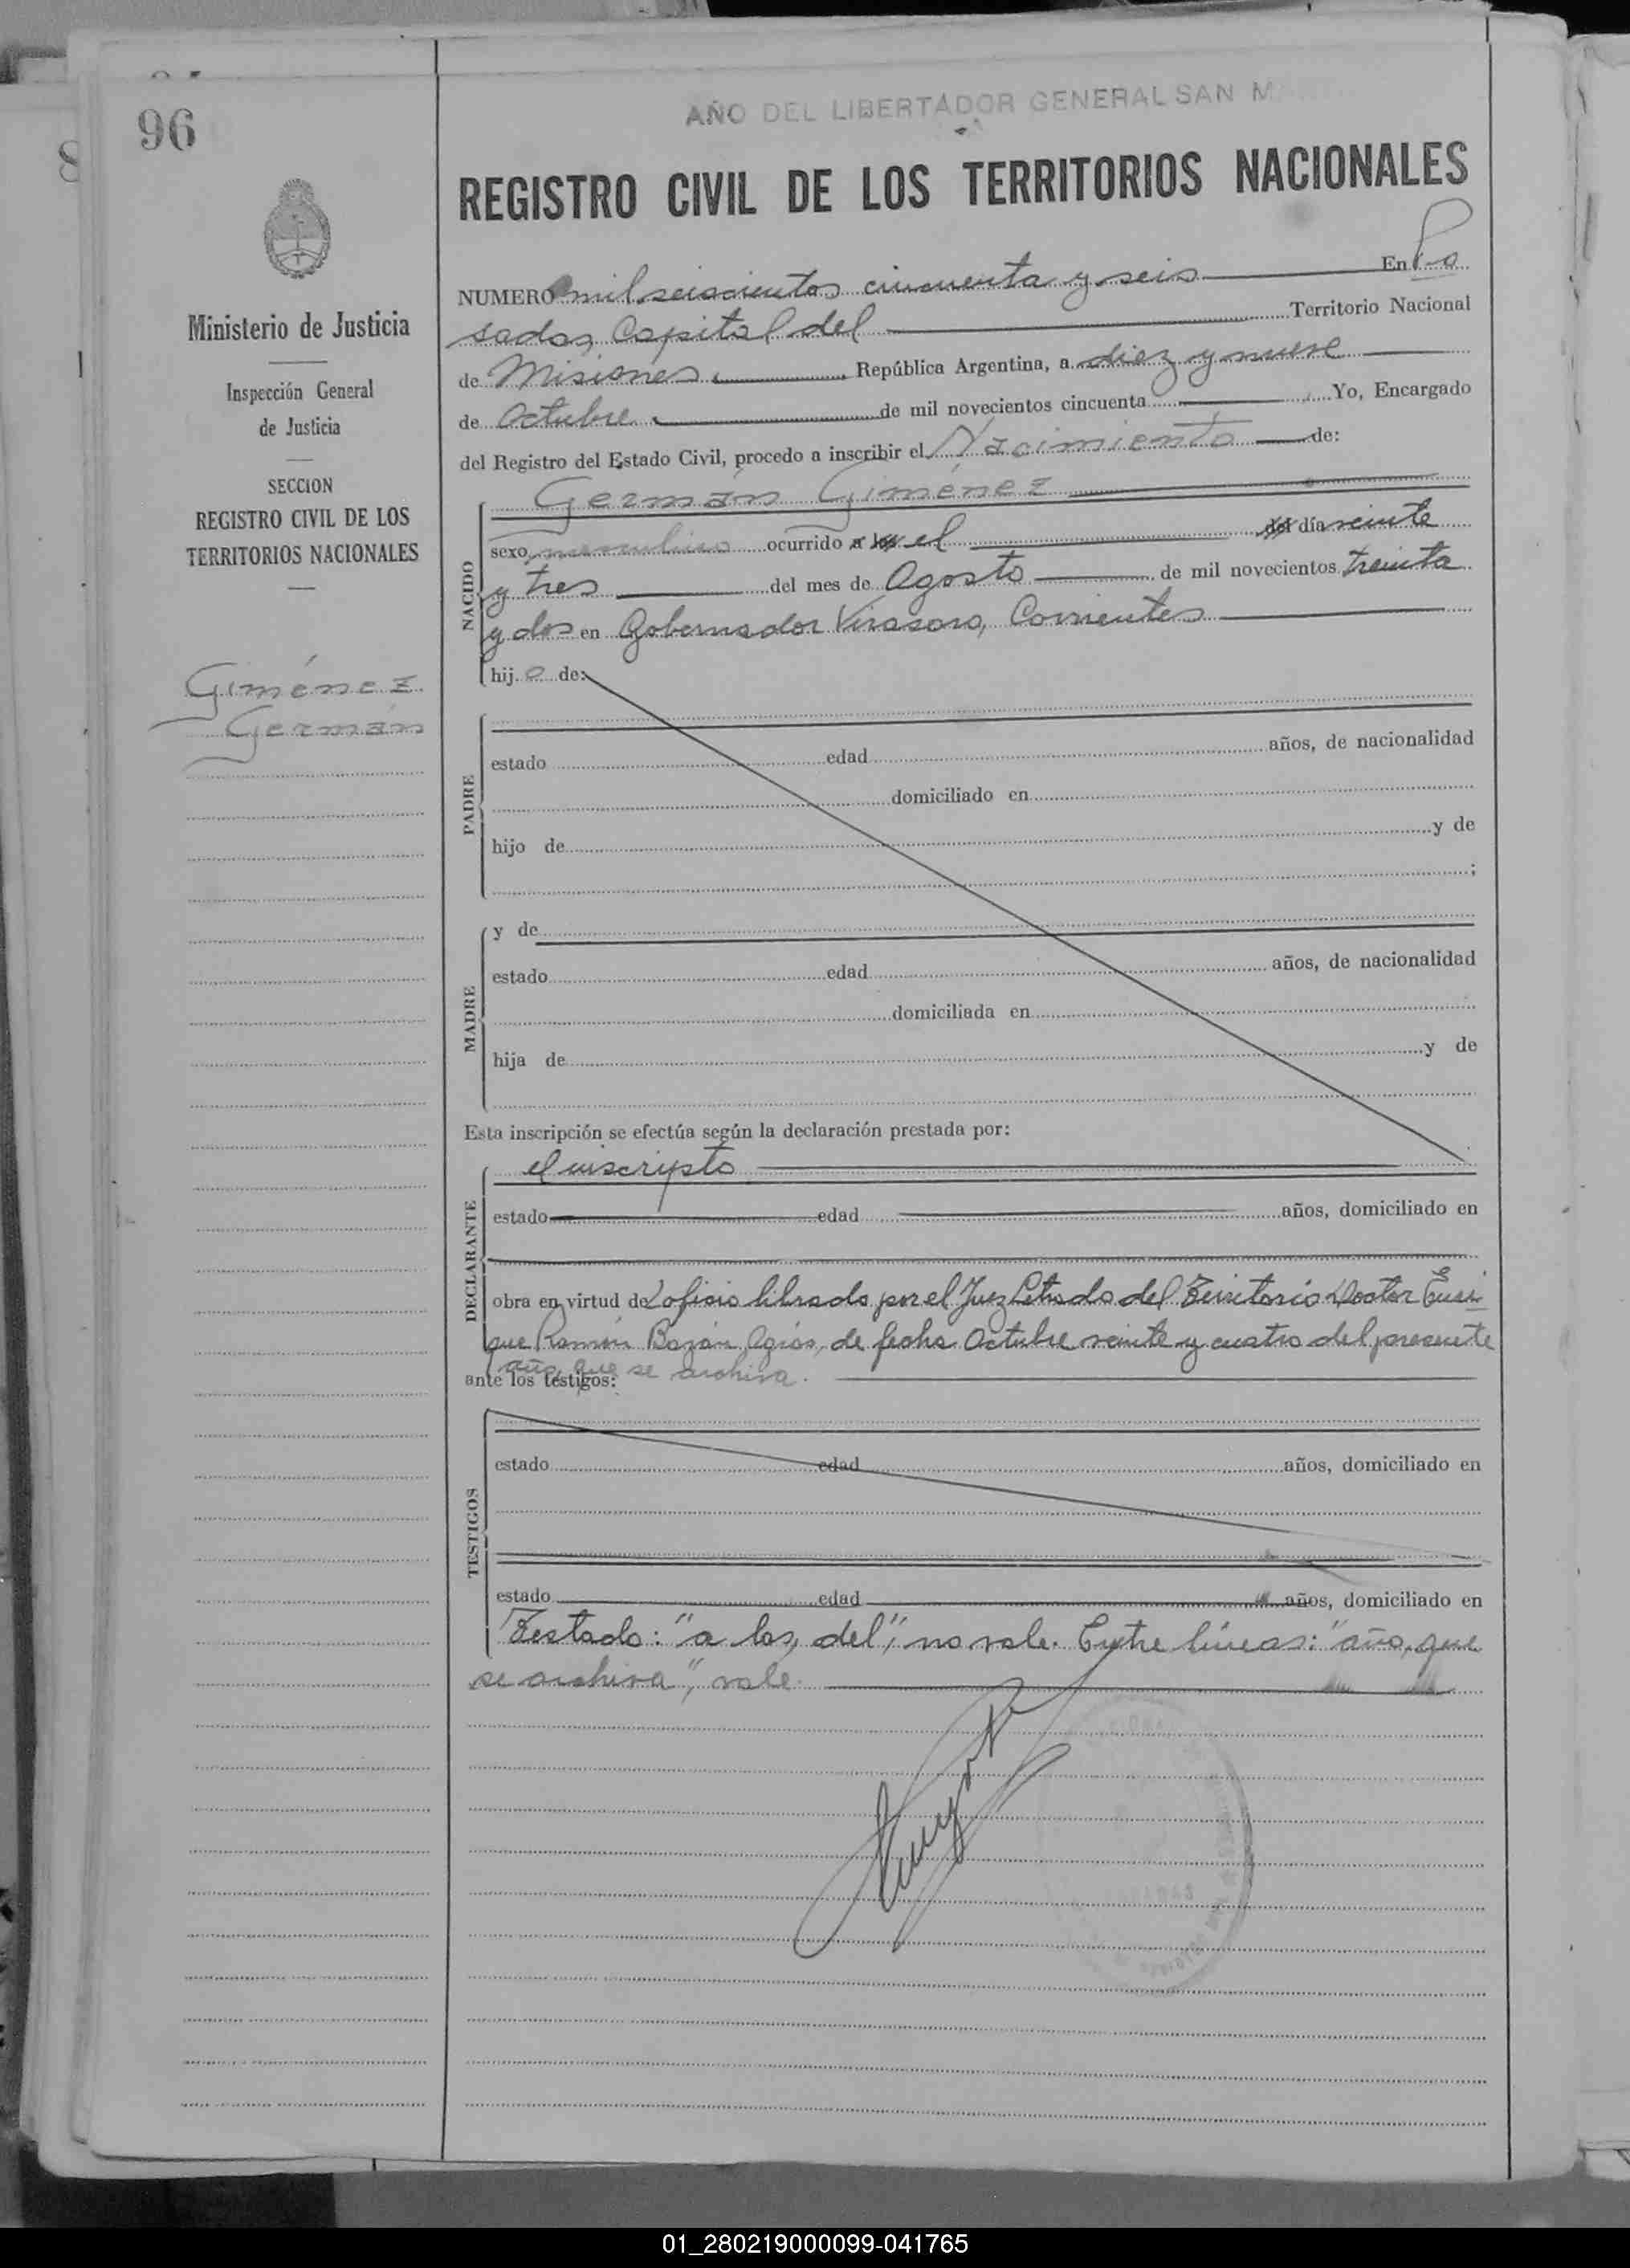 96
AÑO DEL LIBERTADOR GENERAL SAN M
REGISTRO CIVIL DE LOS TERRITORIOS NACIONALES
Ministerio de Justicia
Inspección General
de Justicia
SECCION
REGISTRO CIVIL DE LOS
TERRITORIOS NACIONALES
Giménez
Germán
NUMERO mil seiscientos cincuenta y seis En Po
sadas, Capital del Territorio Nacional
de Misiones República Argentina, a diez y nueve
de Octubre de mil novecientos cincuenta Yo, Encargado
del Registro del Estado Civil, procedo a inscribir el Nacimiento de:
NACIDO
Germán Giménez
sexo masculino ocurrido a las el del día veinte
y tres del mes de Agosto de mil novecientos treinta
y dos en Gobernador Virasoro, Corrientes
hijo de:
PADRE
estado edad años, de nacionalidad
domiciliado en
hijo de y de
;
MADRE
y de
estado edad años, de nacionalidad
domiciliada en
hija de y de
Esta inscripción se efectúa según la declaración prestada por:
DECLARANTE
el inscripto
estado edad años, domiciliado en
obra en virtud del oficio librado por el Juez Letrado del Territorio Doctor Enri
que Ramón Bazán Agrás, de fecha Octubre veinte y cuatro del presente
año, que se archiva.
ante los testigos:
TESTIGOS
estado edad años, domiciliado en
estado edad años, domiciliado en
Testado: "a las, del", no vale. Entre líneas: "año, que
se archiva", vale.
01_280219000099-041765